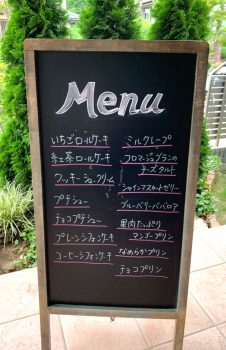 Menu
いちごロールケーキ
紅茶ロールケーキ
クッキーシュークリーム
プチシュー
チョコプチシュー
プレーンシフォンケーキ
コーヒーシフォンケーキ
ミルクレープ
フロマージュブランの
チーズタルト
シャインマスカットゼリー
ブルーベリーババロア
果肉たっぷり
マンゴープリン
なめらかプリン
チョコプリン